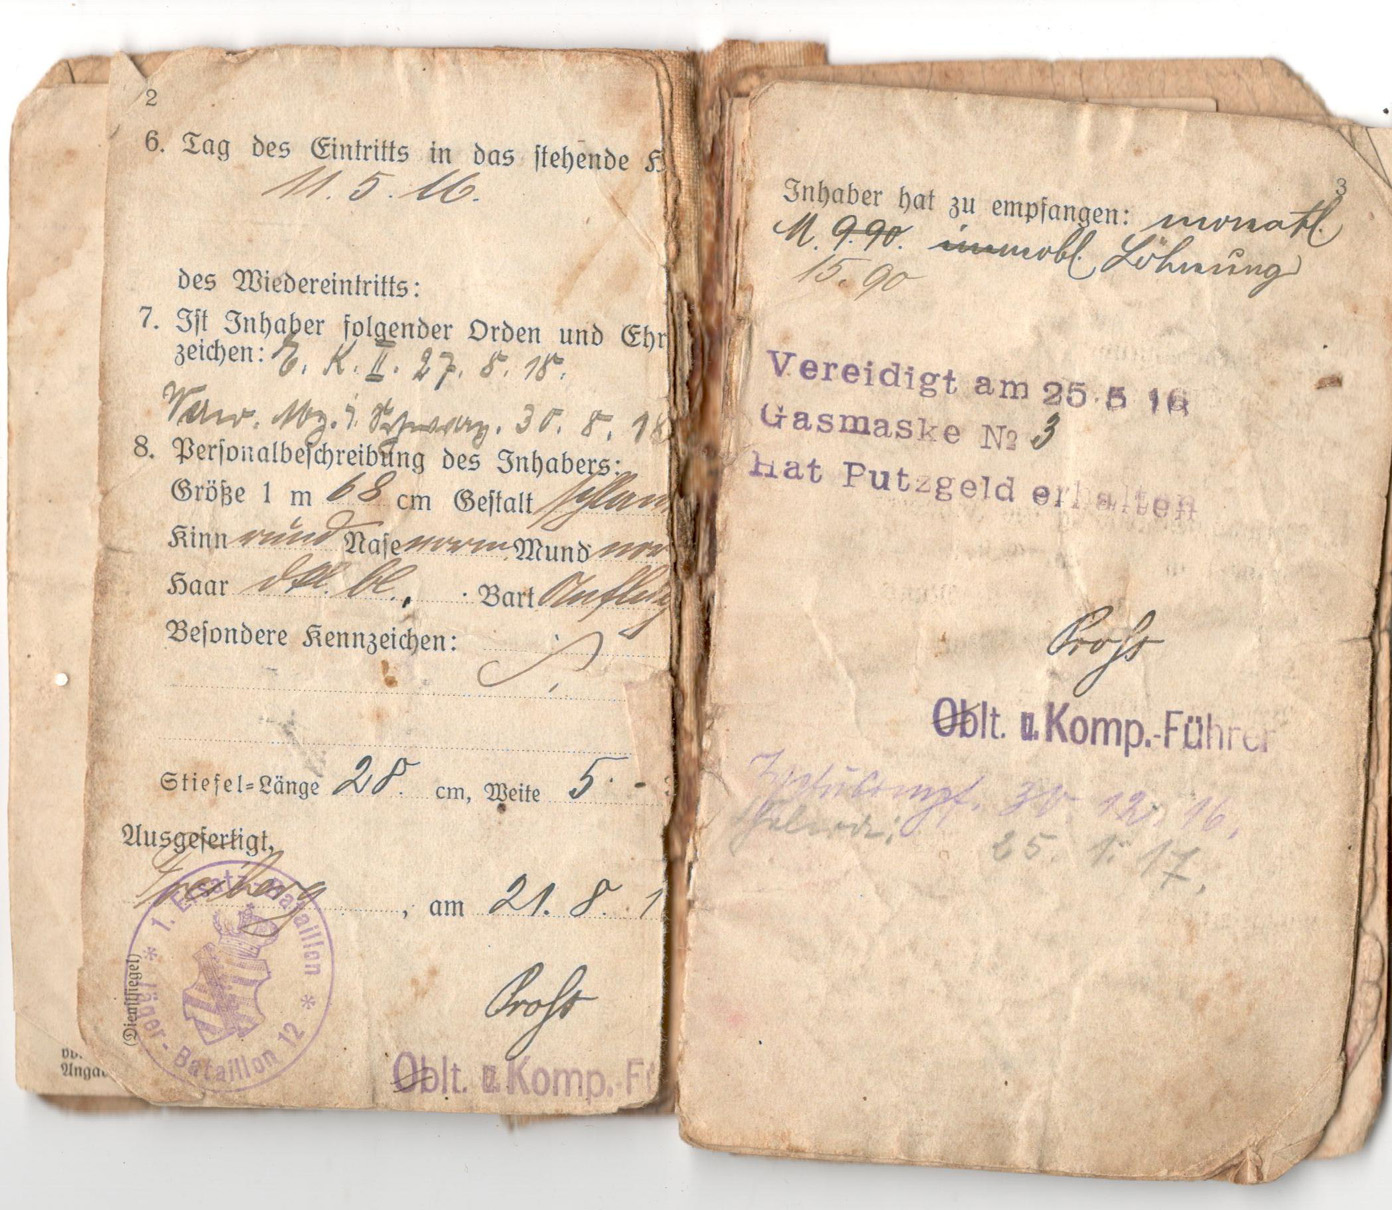 2
6. Tag des Eintritts in das stehende H
11. 5. 16.
des Wiedereintritts:
7. Ist Inhaber folgender Orden und Ehr
zeichen: E. K. II. 27. 8. 18.
Verw. Abz. i. Schwarz. 30. 8. 18
8. Personalbeschreibung des Inhabers:
Größe 1 m 68 cm Gestalt schlan
Kinn rund Nase norm Mund nor
Haar dkl. bl., Bart Anflug
Besondere Kennzeichen:
Stiefel-Länge 28. cm, Weite 5. -
Ausgefertigt,
Freiberg, am 21. 8. 1
(Dienstsiegel)
* 1. Ersatz-Bataillon * Jäger-Bataillon 12
Oblt. u. Komp.-Fü
vo
Angab
3
Inhaber hat zu empfangen: monatl.
M. 9.90. immobl. Löhnung
15.90
Vereidigt am 25.5 16
Gasmaske № 3
Hat Putzgeld erhalten
Oblt. u. Komp.-Führer
30. 12. 16.
25. 1. 17.